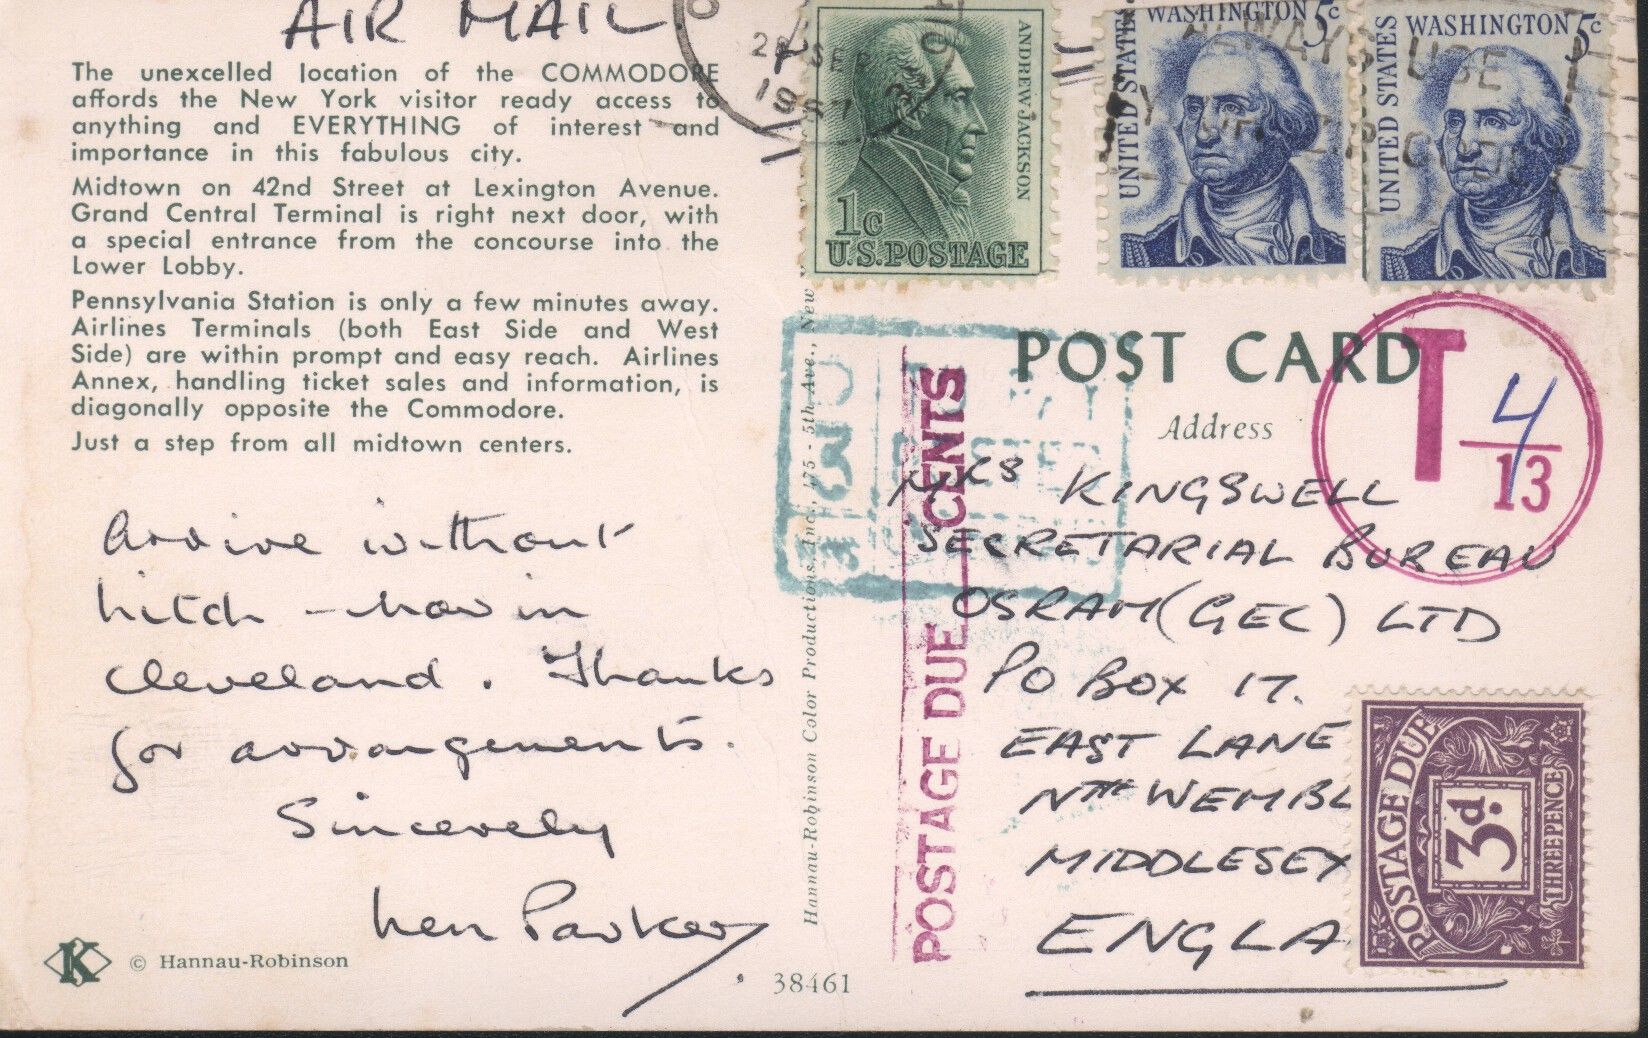 AIR MAIL
The unexcelled location of the COMMODORE
affords the New York visitor ready access to
anything and EVERYTHING of interest and
importance in this fabulous city.
Midtown on 42nd Street at Lexington Avenue.
Grand Central Terminal is right next door, with
a special entrance from the concourse into the
Lower Lobby.
Pennsylvania Station is only a few minutes away.
Airlines Terminals (both East Side and West
Side) are within prompt and easy reach. Airlines
Annex, handling ticket sales and information, is
diagonally opposite the Commodore.
Just a step from all midtown centers.
Arrive without
hitch – now in
Cleveland. Thanks
for arrangements.
Sincerely
Len Parker
K © Hannau-Robinson
38461
Hannau-Robinson Color Productions, Inc., 475 - 5th Ave., New
SEP
1967
ANDREW JACKSON
1c
U.S. POSTAGE
WASHINGTON 5c
UNITED STATES
WASHINGTON 5c
UNITED STATES
ALWAYS USE
ZIP CODE
POST CARD
Address
T 4/13
POSTAGE DUE CENTS
MRS KINGSWELL
SECRETARIAL BUREAU
OSRAM (GEC) LTD
PO BOX 17.
EAST LANE
NTH WEMBL
MIDDLESEX
ENGLA
POSTAGE DUE
3d.
THREEPENCE